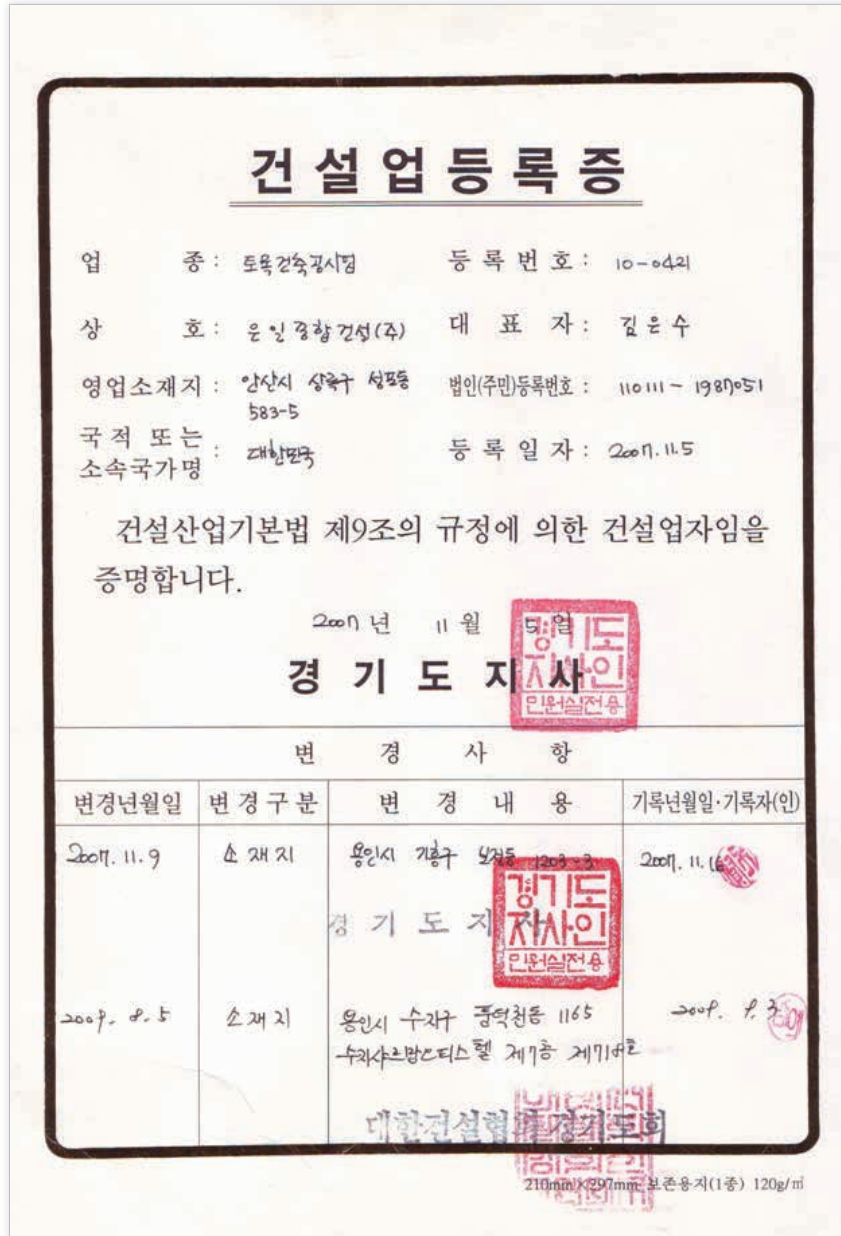 건설업등록증
업 종 : 토목건축공사업 등록번호 : 10-0421
상 호 : 은일종합건설(주) 대 표 자 : 김은수
영업소재지 : 안산시 상록구 성포동 583-5 법인(주민)등록번호 : 110111-1987051
국적 또는 소속국가명 : 대한민국 등록일자 : 2007.11.5
건설산업기본법 제9조의 규정에 의한 건설업자임을
증명합니다.
2007년 11월 5일
경기도지사
경기도
지사인
민원실전용
변 경 사 항
변경년월일 변경구분 변 경 내 용 기록년월일·기록자(인)
2007.11.9 소재지 용인시 기흥구 보정동 1203-3 2007.11.16
경기도지사
경기도
지사인
민원실전용
2009.8.5 소재지 용인시 수지구 풍덕천동 1165 2009. 9. 3
수지샤르망오피스텔 제7층 제718호
대한건설협회 경기도회
210mm×297mm 보존용지(1종) 120g/㎡